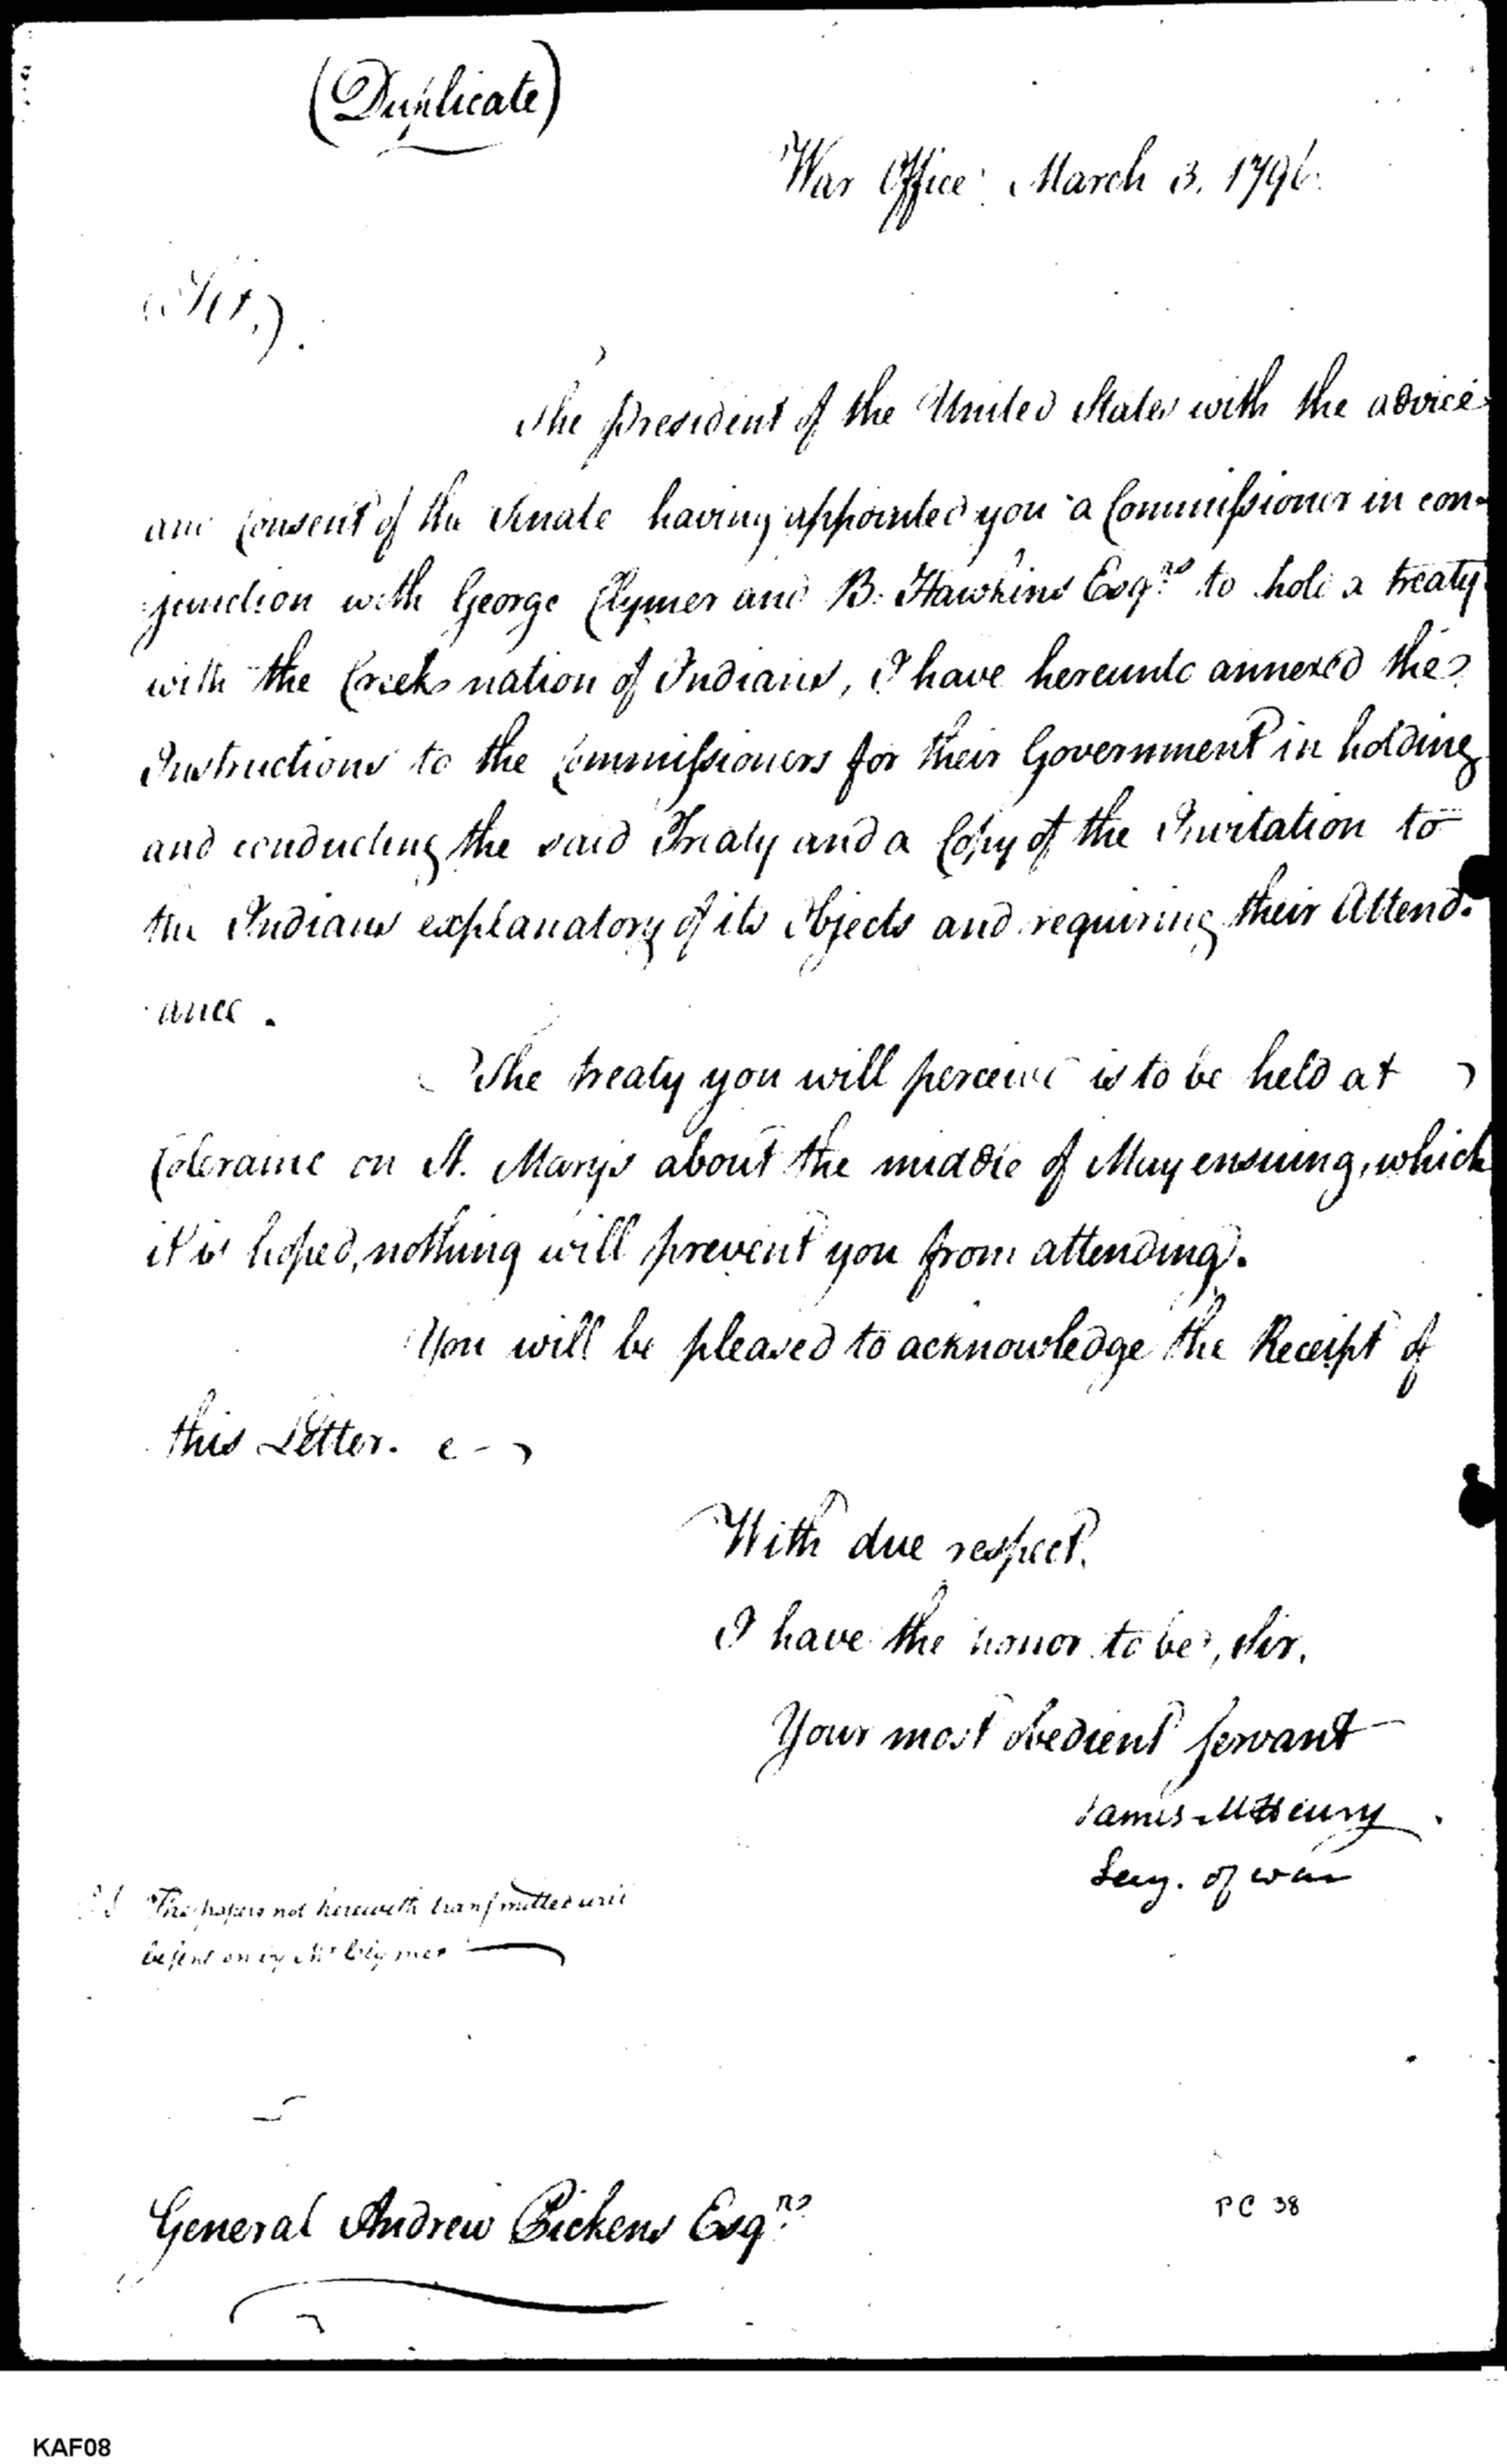 (Duplicate)
War Office March 3. 1796.
Sir,
The president of the United States with the advice
and Consent of the Senate having appointed you a Commissioner in con-
junction with George Clymer and B. Hawkins Esqrs. to hold a treaty
with the Creek nation of Indians, I have hereunto annexed the
Instructions to the Commissioners for their Government in holding
and conducting the said Treaty and a Copy of the Invitation to
the Indians explanatory of its Objects and requiring their Attend-
ance.
The treaty you will perceive is to be held at
Coleraine on St. Marys about the middle of May ensuing, which
it is hoped, nothing will prevent you from attending.
You will be pleased to acknowledge the Receipt of
this Letter.
With due respect.
I have the honor to be, Sir,
Your most obedient servant
James McHenry
Secy. of war
The papers not herewith transmitted will
be sent on by Mr Clymer
General Andrew Pickens Esqrs.
PC 38
KAF08